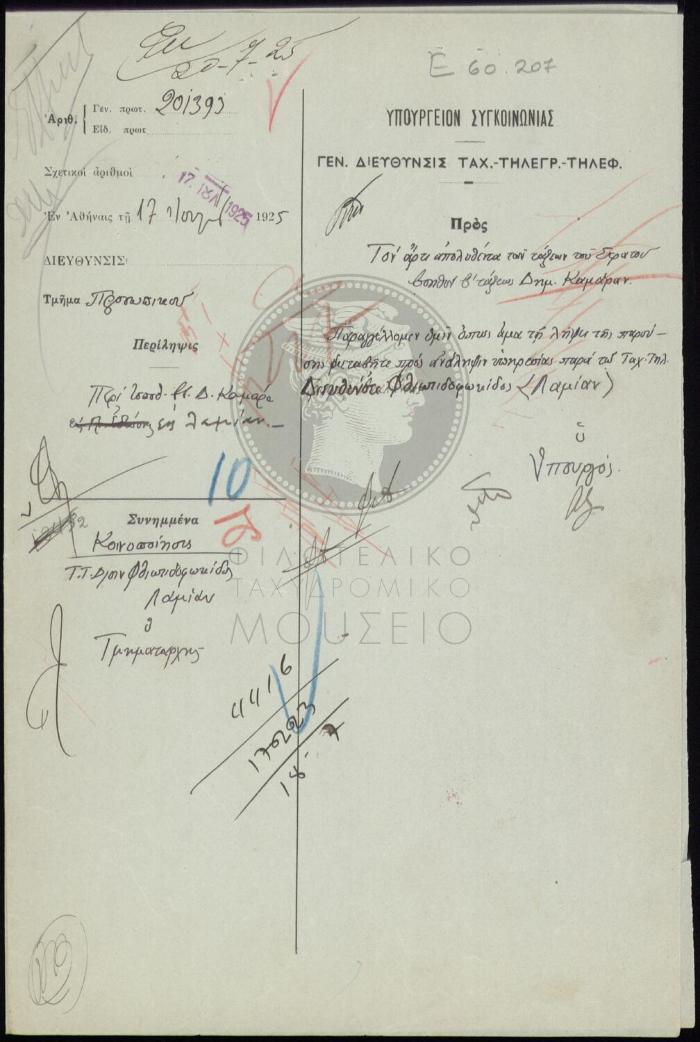 20-7-25
E 60.207
Ἀριθ. Γεν. πρωτ. 201393
Εἰδ. πρωτ
Σχετικοὶ ἀριθμοὶ
17. ΙΟΥΛ 1925
Ἐν Ἀθήναις τῇ 17 Ἰουλίου 1925
ΔΙΕΥΘΥΝΣΙΣ
Τμῆμα Προσωπικοῦ
Περίληψις
Περὶ Δ. Καμάρα
εἰς Λαμίαν
10
Συνημμένα
Κοινοποίησις
Τ.Τ. Δ)σιν Φθιωτιδοφωκίδος
Λαμίαν
ὁ
Τμηματάρχης
ΥΠΟΥΡΓΕΙΟΝ ΣΥΓΚΟΙΝΩΝΙΑΣ
ΓΕΝ. ΔΙΕΥΘΥΝΣΙΣ ΤΑΧ.-ΤΗΛΕΓΡ.-ΤΗΛΕΦ.
Πρὸς
Τὸν ἄρτι ἀπολυθέντα τῶν τάξεων τοῦ Στρατοῦ
βοηθὸν β' τάξεως Δημ. Καμάραν.
Παραγγέλλομεν ὑμῖν ὅπως ἅμα τῇ λήψει τῆς παρού-
σης μεταβῆτε πρὸς ἀνάληψιν ὑπηρεσίας παρὰ τῇ Ταχ. Τηλ.
Διευθύνσει Φθιωτιδοφωκίδος (Λαμίαν)
ὁ
Ὑπουργός.
ΦΙΛΟΤΕΛΙΚΟ
ΤΑΧΥΔΡΟΜΙΚΟ
ΜΟΥΣΕΙΟ
4416
18-7